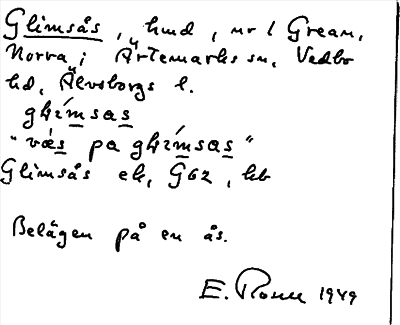 Glimsås, hmd, nr 1 Gream,
Norra, i Ärtemarks sn, Vedbo
hd, Älvsborgs l.
glímsas
"vǽs pa glímsas"
Glimsås ek, G62, kb
Belägen på en ås.
E. 1949